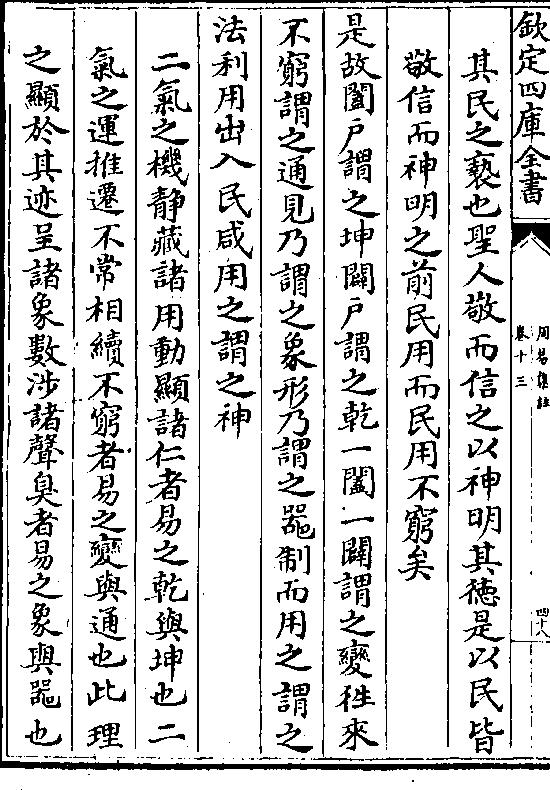 欽定四庫全書
周易集註
卷十三
四十八
其民之褻也聖人敬而信之以神明其徳是以民皆
敬信而神明之前民用而民用不窮矣
是故闔户謂之坤闢户謂之乾一闔一闢謂之變徃來
不窮謂之通見乃謂之象形乃謂之噐制而用之謂之
法利用出入民咸用之謂之神
二氣之機静藏諸用動顯諸仁者易之乾與坤也二
氣之運推遷不常相續不窮者易之變與通也此理
之顯於其迹呈諸象數涉諸聲臭者易之象與噐也